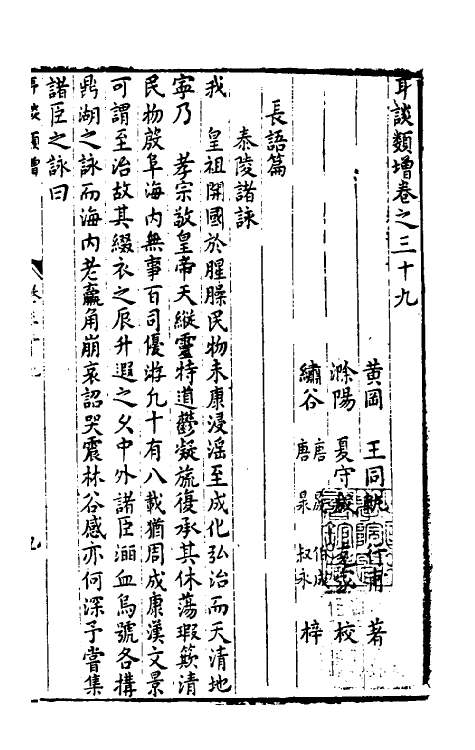 耳談類增卷之三十九
黃岡 王同軌行甫 著
滁陽 夏守 校
繡谷 唐 唐 叔永 梓
長語篇
泰陵諸詠
我 皇祖開國於腥臊民物未康浸淫至成化弘治而天清地
寧乃 孝宗敬皇帝天縱靈特道鬱凝旒復承其休蕩瑕簸清
民物殷阜海内無事百司優游凡十有八載猶周成康漢文景
可謂至治故其綴衣之辰升遐之夕中外諸臣洒血烏號各搆
鼎湖之詠而海内老羸角崩哀詔哭震林谷感亦何深予嘗集
諸臣之詠曰
耳談類增 卷三十九 九